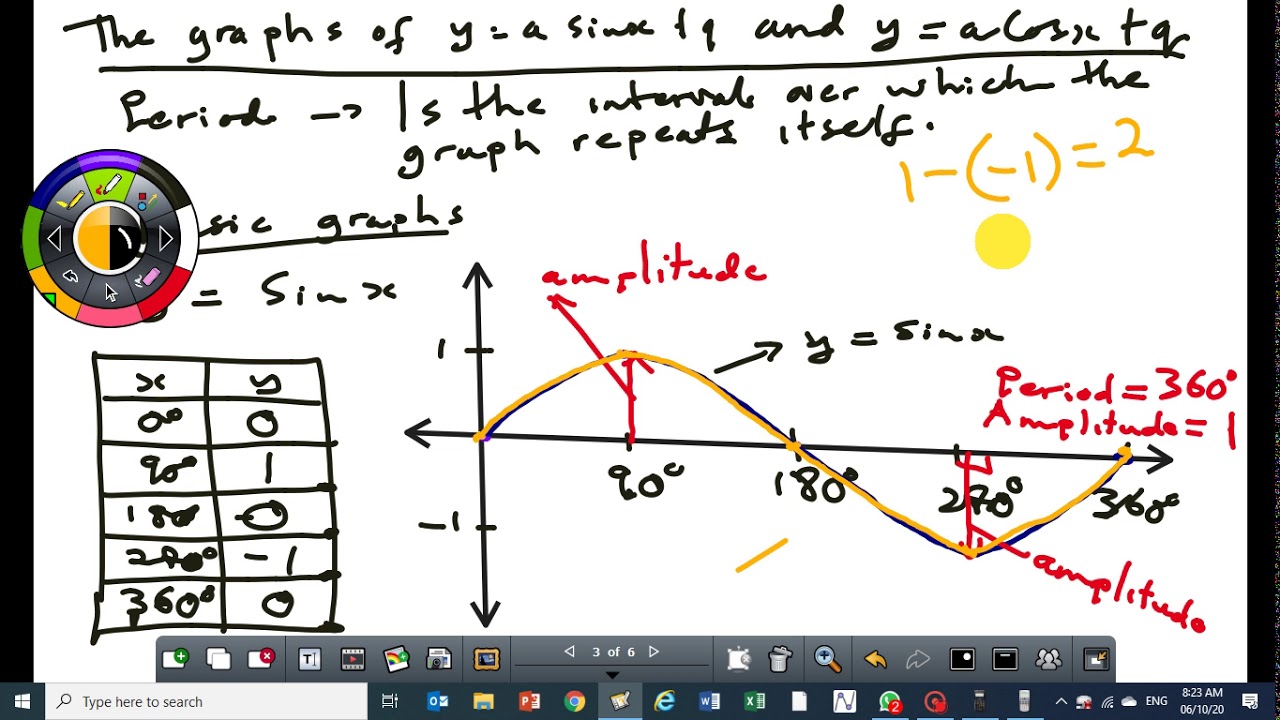 The graphs of y = a sinx + q and y = a cosx + q
Period → Is the interval over which the
graph repeats itself.
1 - (-1) = 2
sic graphs
= Sinx
amplitude
y = sinx
1
-1
90° 180° 270° 360°
Period = 360°
Amplitude = 1
amplitude
x y
0° 0
90° 1
180 0
270° -1
360° 0
3 of 6
Type here to search
2
ENG
8:23 AM
06/10/20